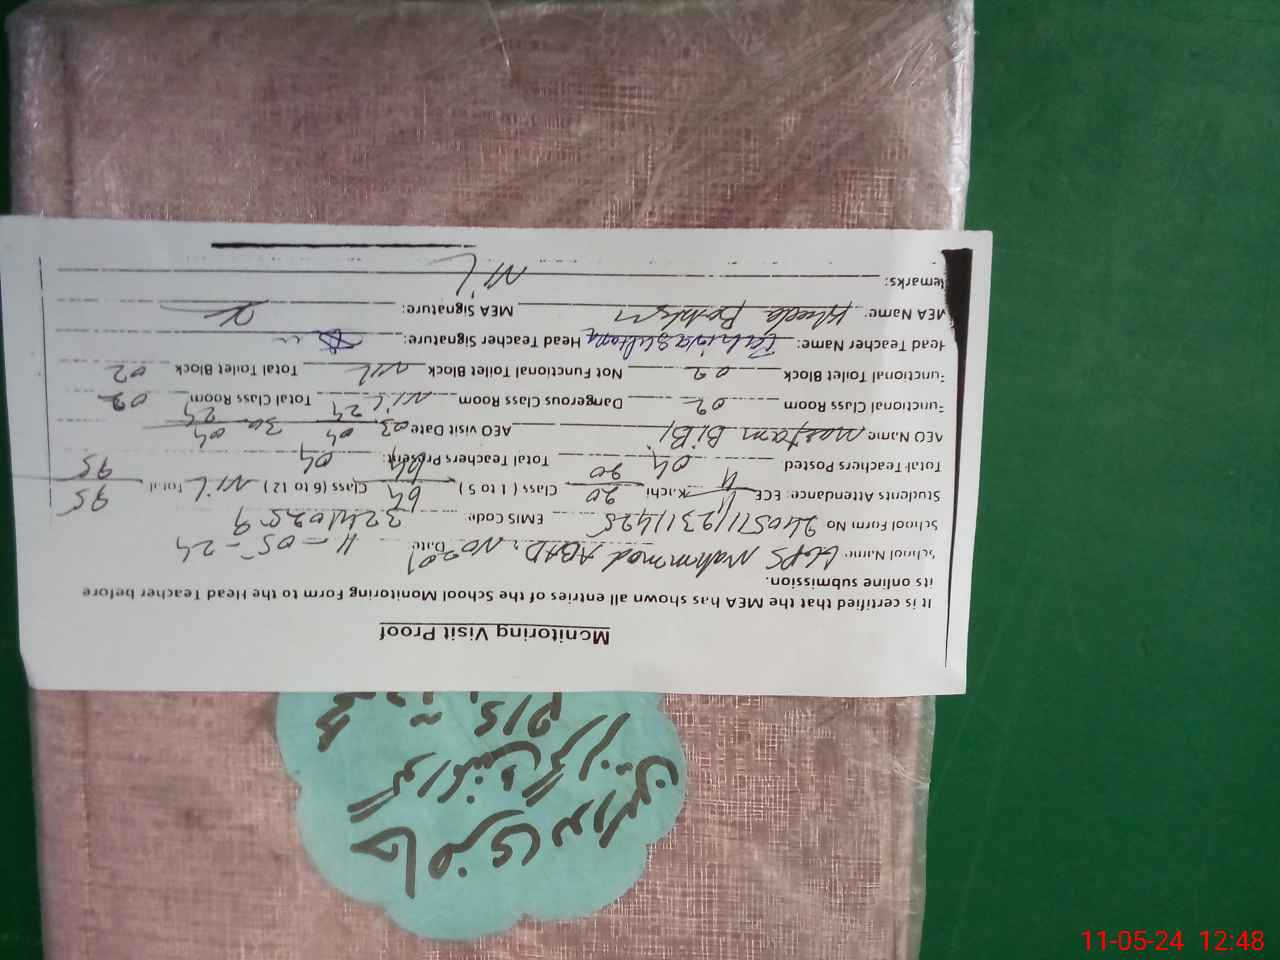 Monitoring Visit Proof
It is certified that the MEA has shown all entries of the School Monitoring Form to the Head Teacher before
its online submission.
School Name: GGPS Mahmmod ABAD, No 201 Date: 11-05-24
School Form No 240511123111425 EMIS Code:
Students Attendance: ECE K.ichi 20 20 Class ( 1 to 5 ) 64 64 Class (6 to 12) NIL Total 95 95
Total Teachers Posted: 04 Total Teachers Present: 04
AEO Name BiBi AEO visit Date 03 04 24 30 04 24
Functional Class Room 02 Dangerous Class Room NIL Total Class Room 02
Functional Toilet Block 02 Not Functional Toilet Block NIL Total Toilet Block 02
Head Teacher Name: Tahira Sultana Head Teacher Signature:
MEA Name: MEA Signature:
Remarks: NIL
حاضری
گورنمنٹ گرلز
11-05-24 12:48